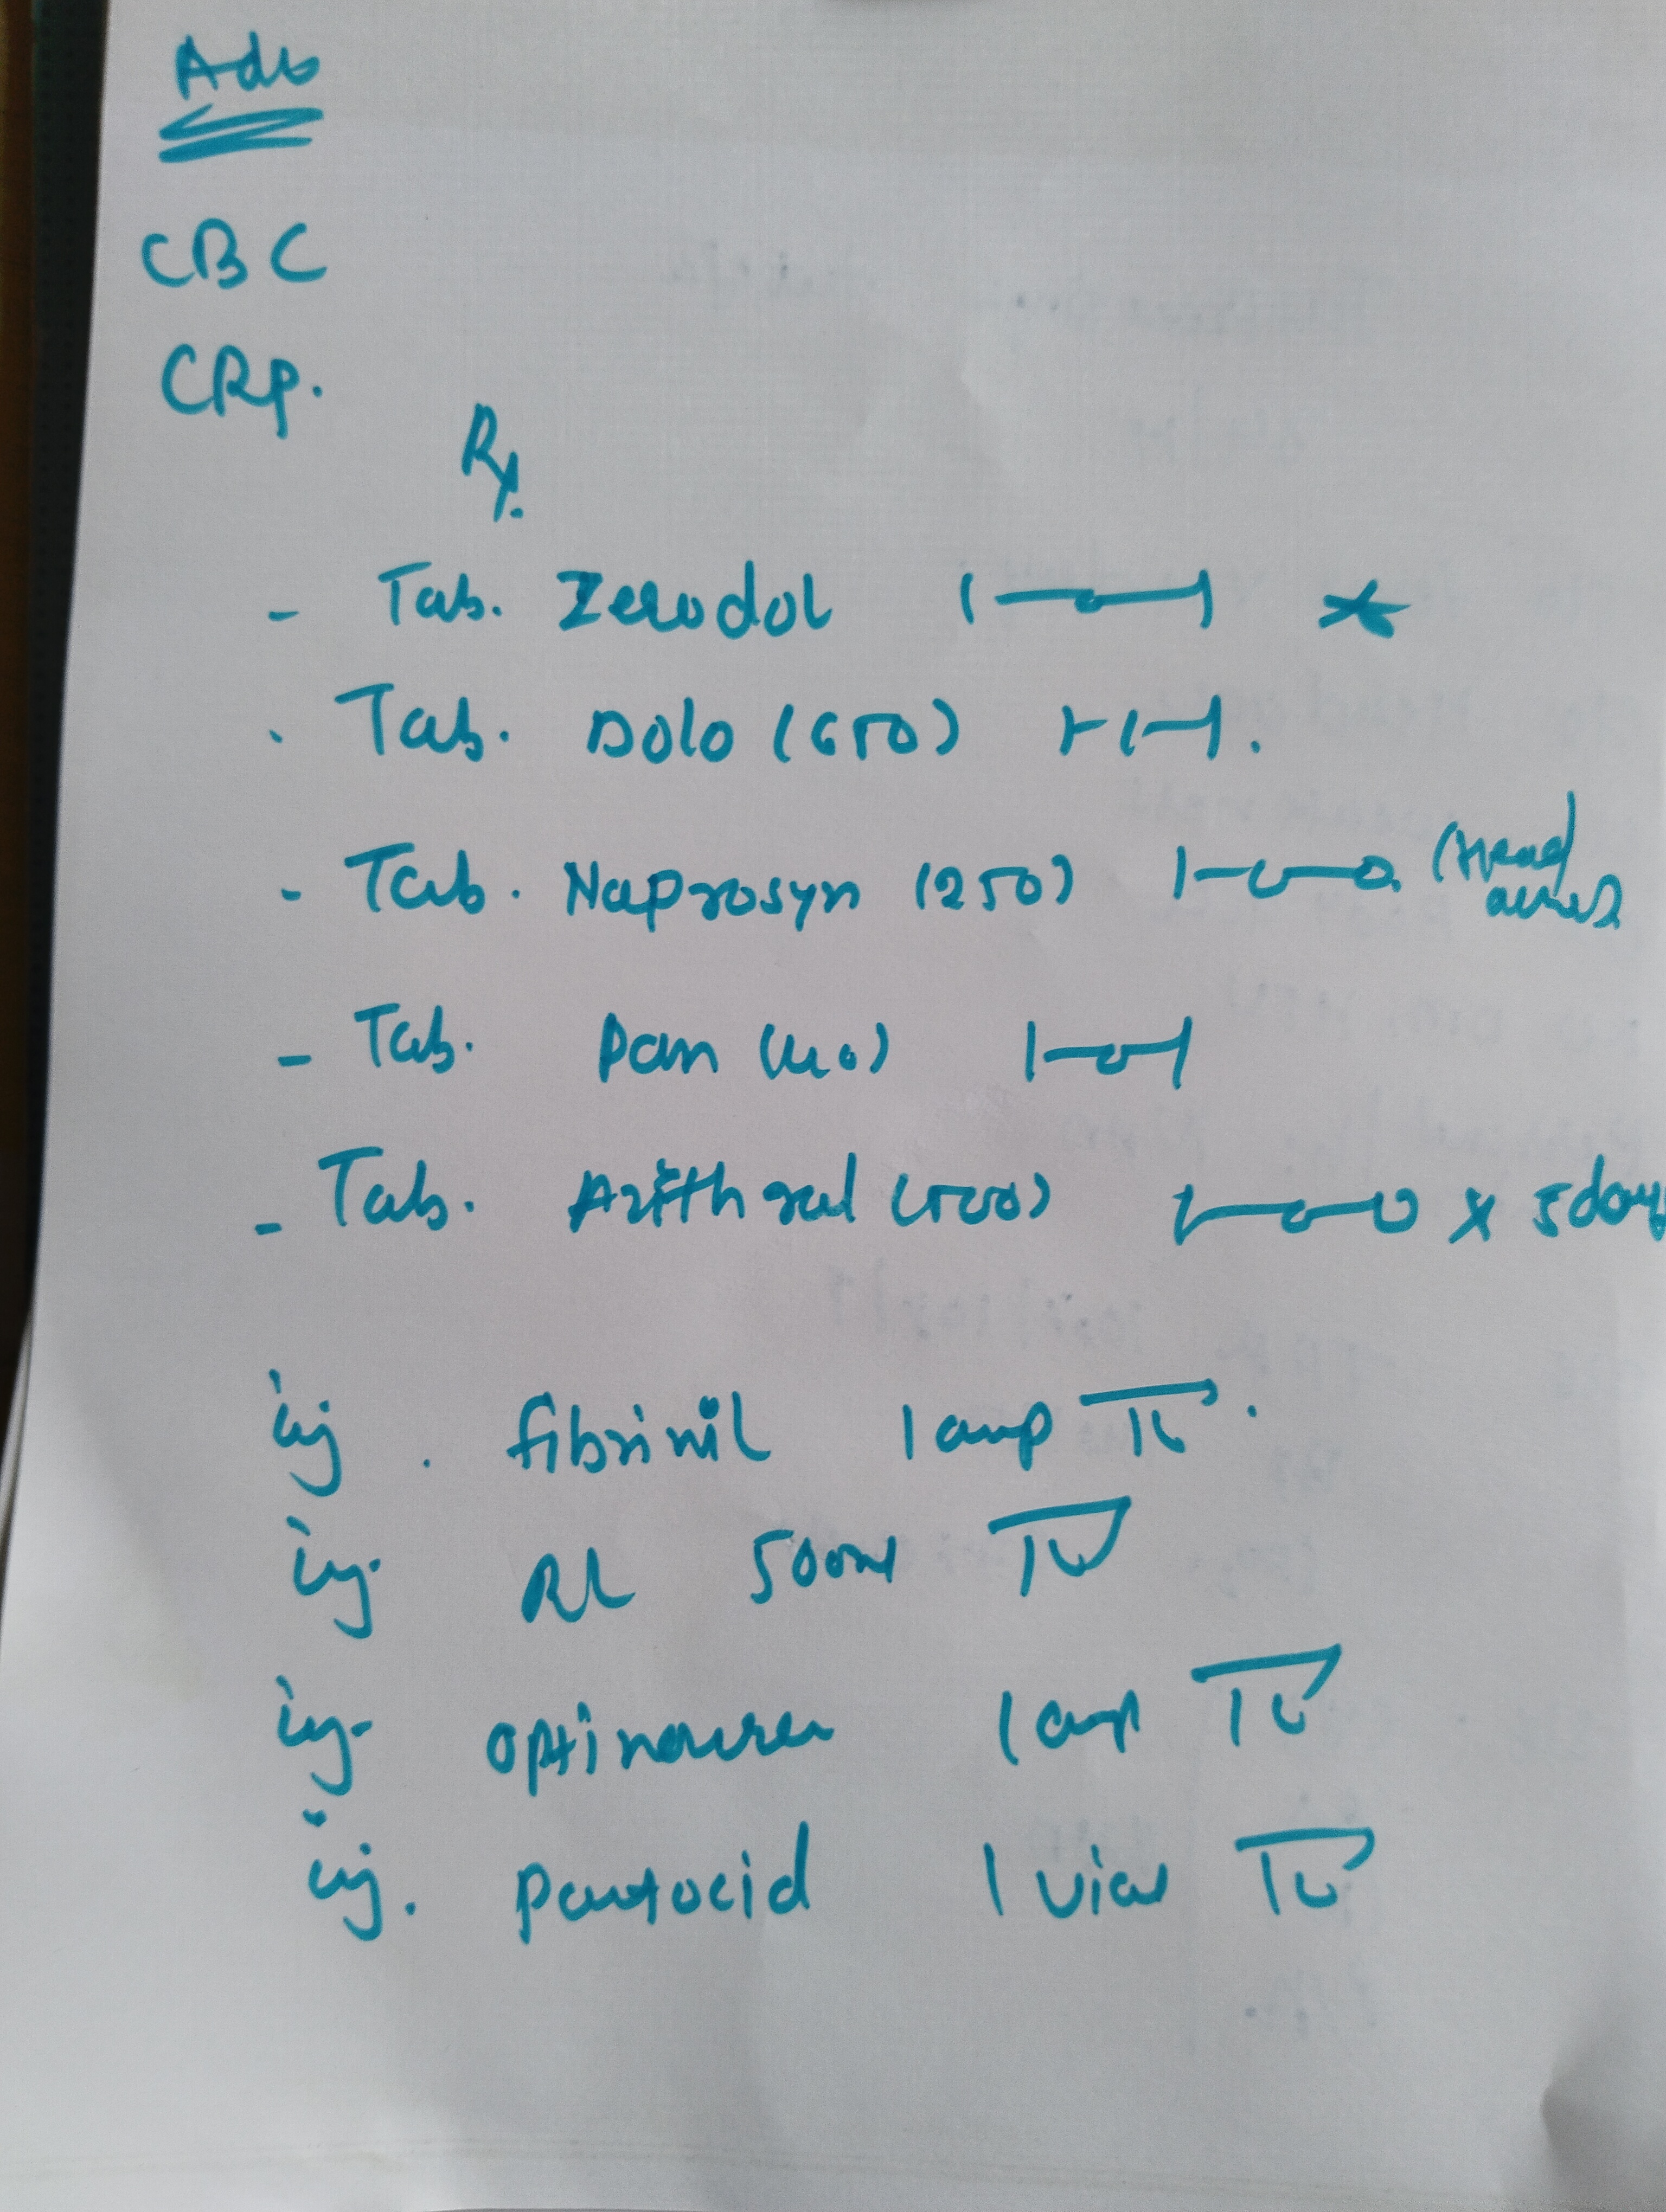 Adv
CBC
CRP.
Rx.
- Tab. Zerodol 1—0—1 x
. Tab. Dolo (650) 1-1-1.
- Tab. Naprosyn (250) 1-0-0. (Head
aches)
- Tab. Pan (40) 1-0-1
- Tab. Azithral (500) 1-0-0 x 5days
inj. fibrinil 1 amp IV.
inj. RL 500ml IV
inj. optineuron 1 amp IV
inj. pantocid 1 vial IV